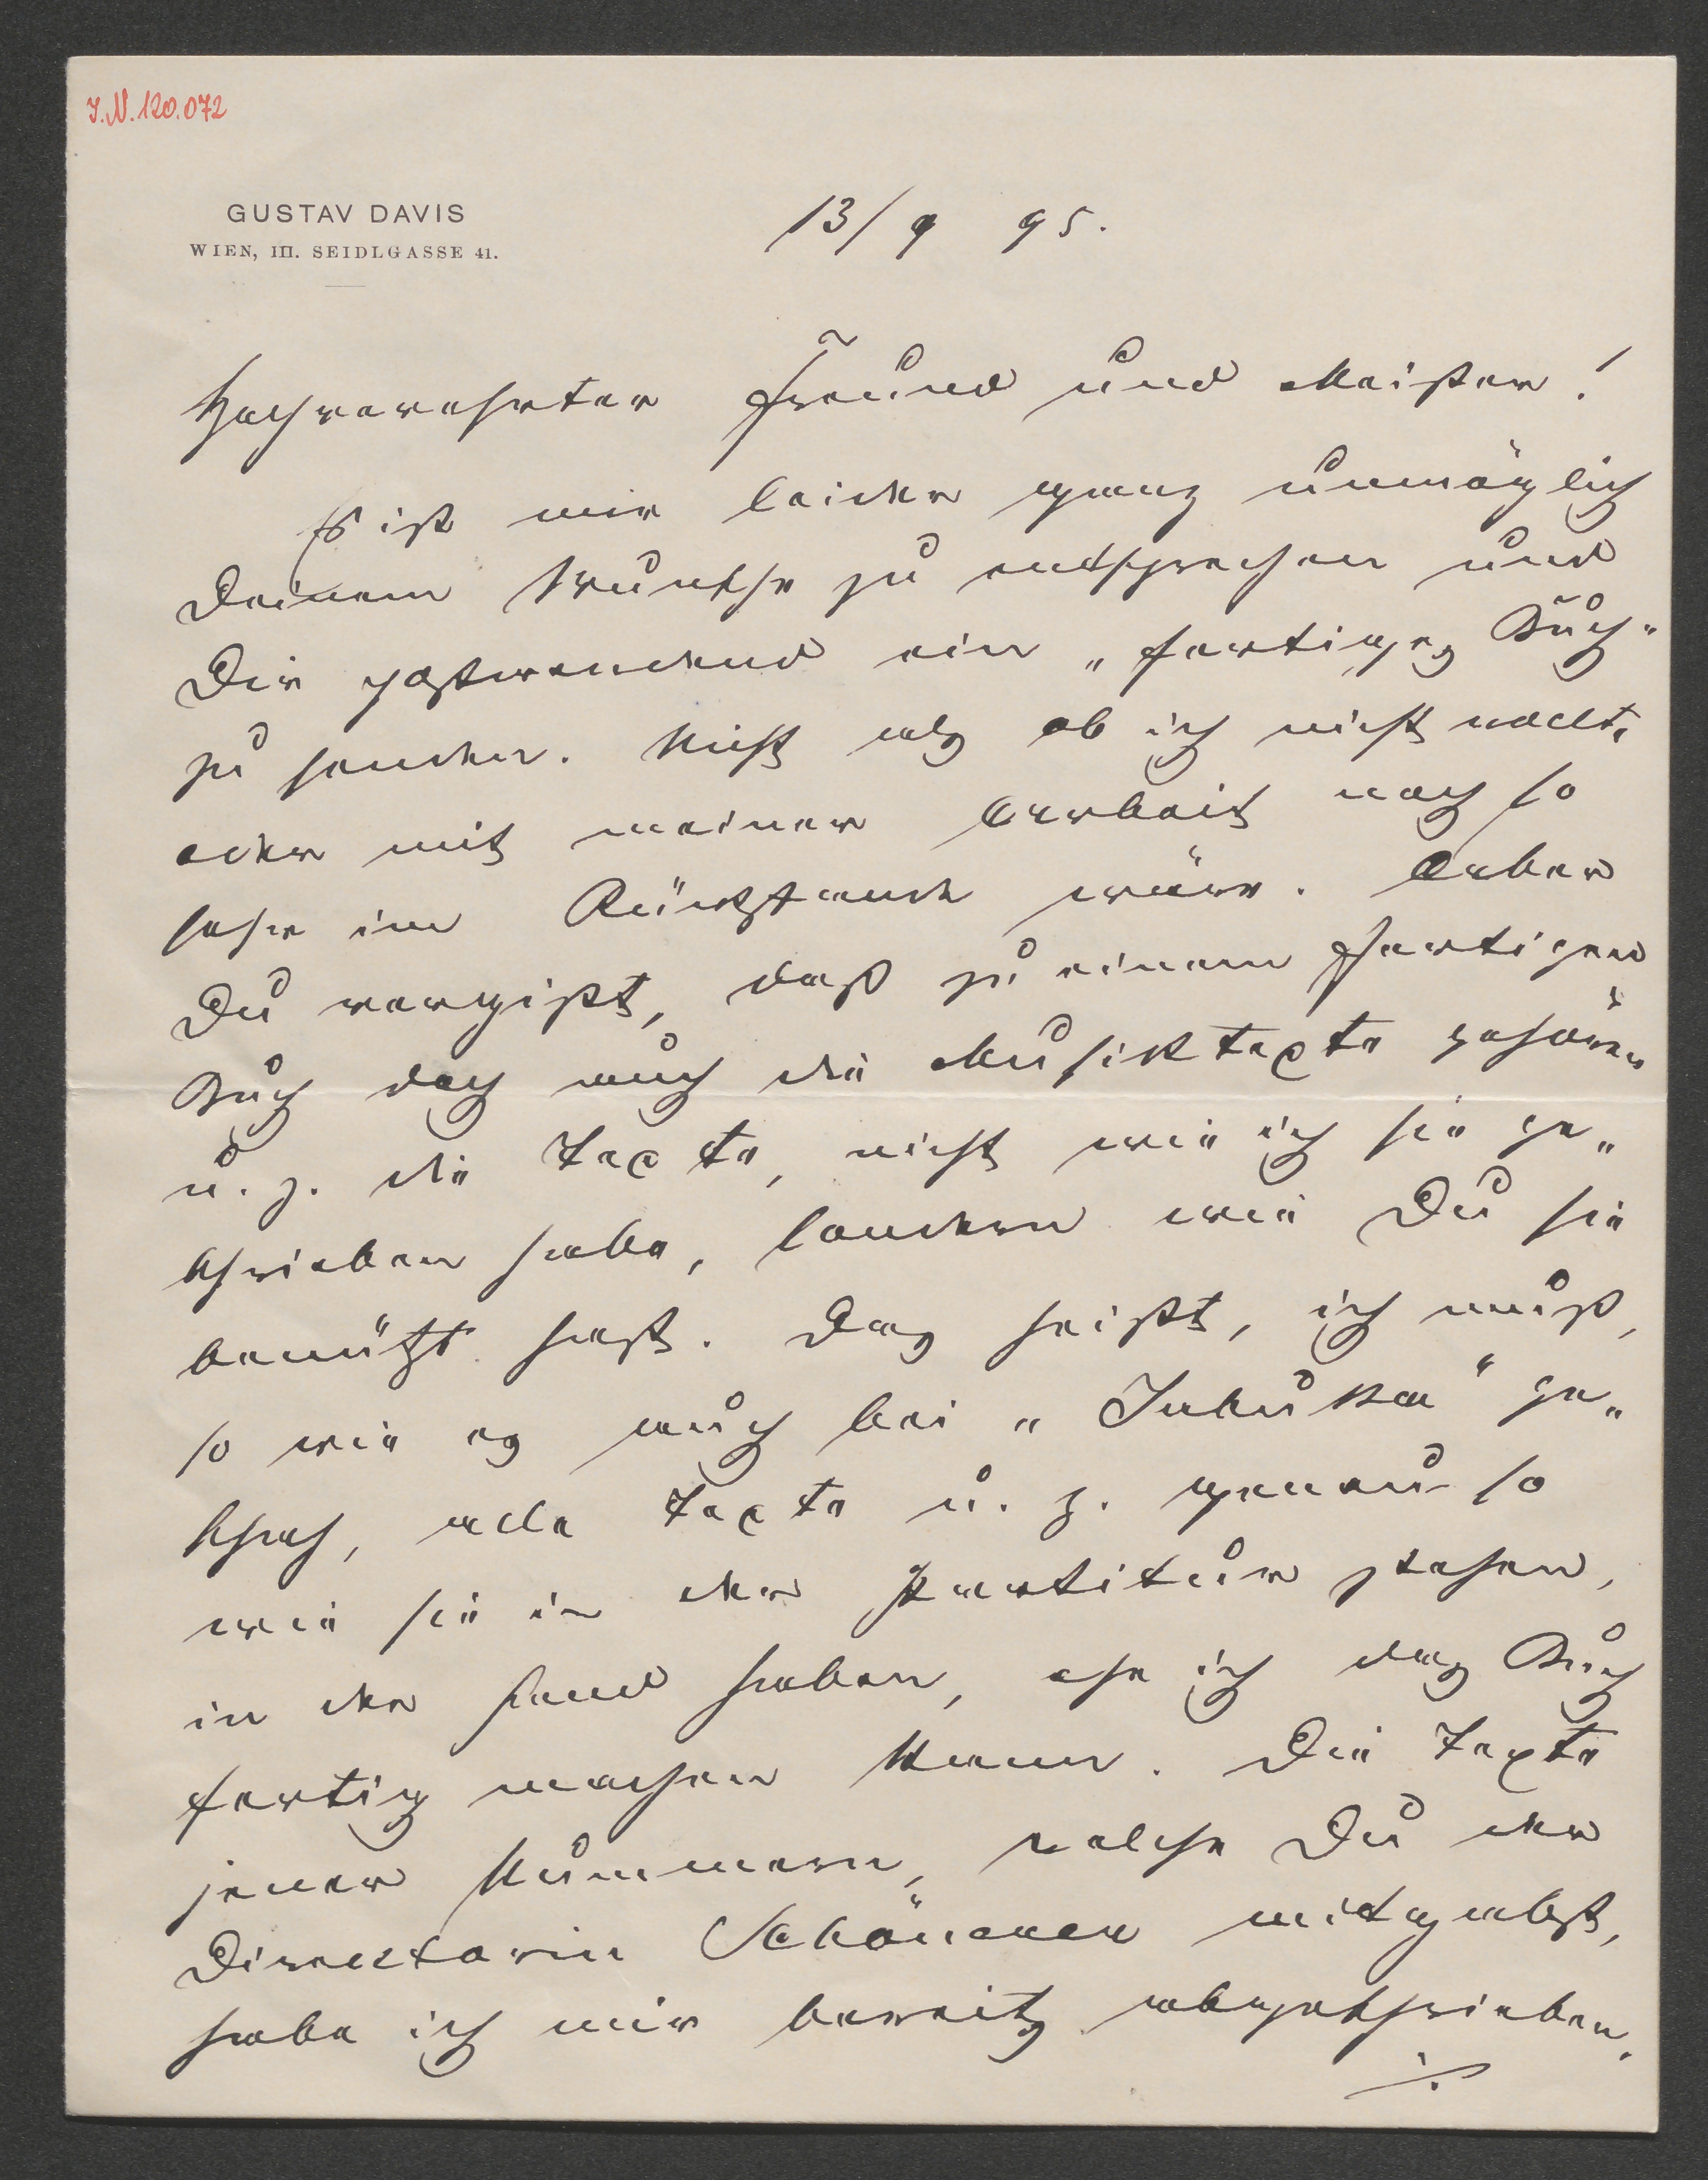 I.N. 120.072
GUSTAV DAVIS
WIEN, III. SEIDLGASSE 41.
13/9 95.
Hochverehrter Freund und Meister!
Es ist mir leider ganz unmöglich
Deinem Wunsche zu entsprechen und
Dir postwendend ein „fertiges Buch"
zu senden. Nicht als ob ich nicht wollte
oder mit meiner Arbeit noch so
sehr im Rückstande wäre. Aber
Du vergißt, daß zu einem fertigen
Buch doch auch die Musiktexte gehören
u. z. die Texte, nicht wie ich sie ge„
schrieben habe, sondern wie Du sie
benützt hast. Das heißt, ich muß,
so wie es auch bei „Jabuka" ge„
schah, alle Texte u. z. genau so
wie sie in der Partitur stehen,
in der Hand haben, ehe ich das Buch
fertig machen kann. Die Texte
jener Nummern, welche Du der
Direktorin Schönerer mitgabst,
habe ich mir bereits abgeschrieben.
./.